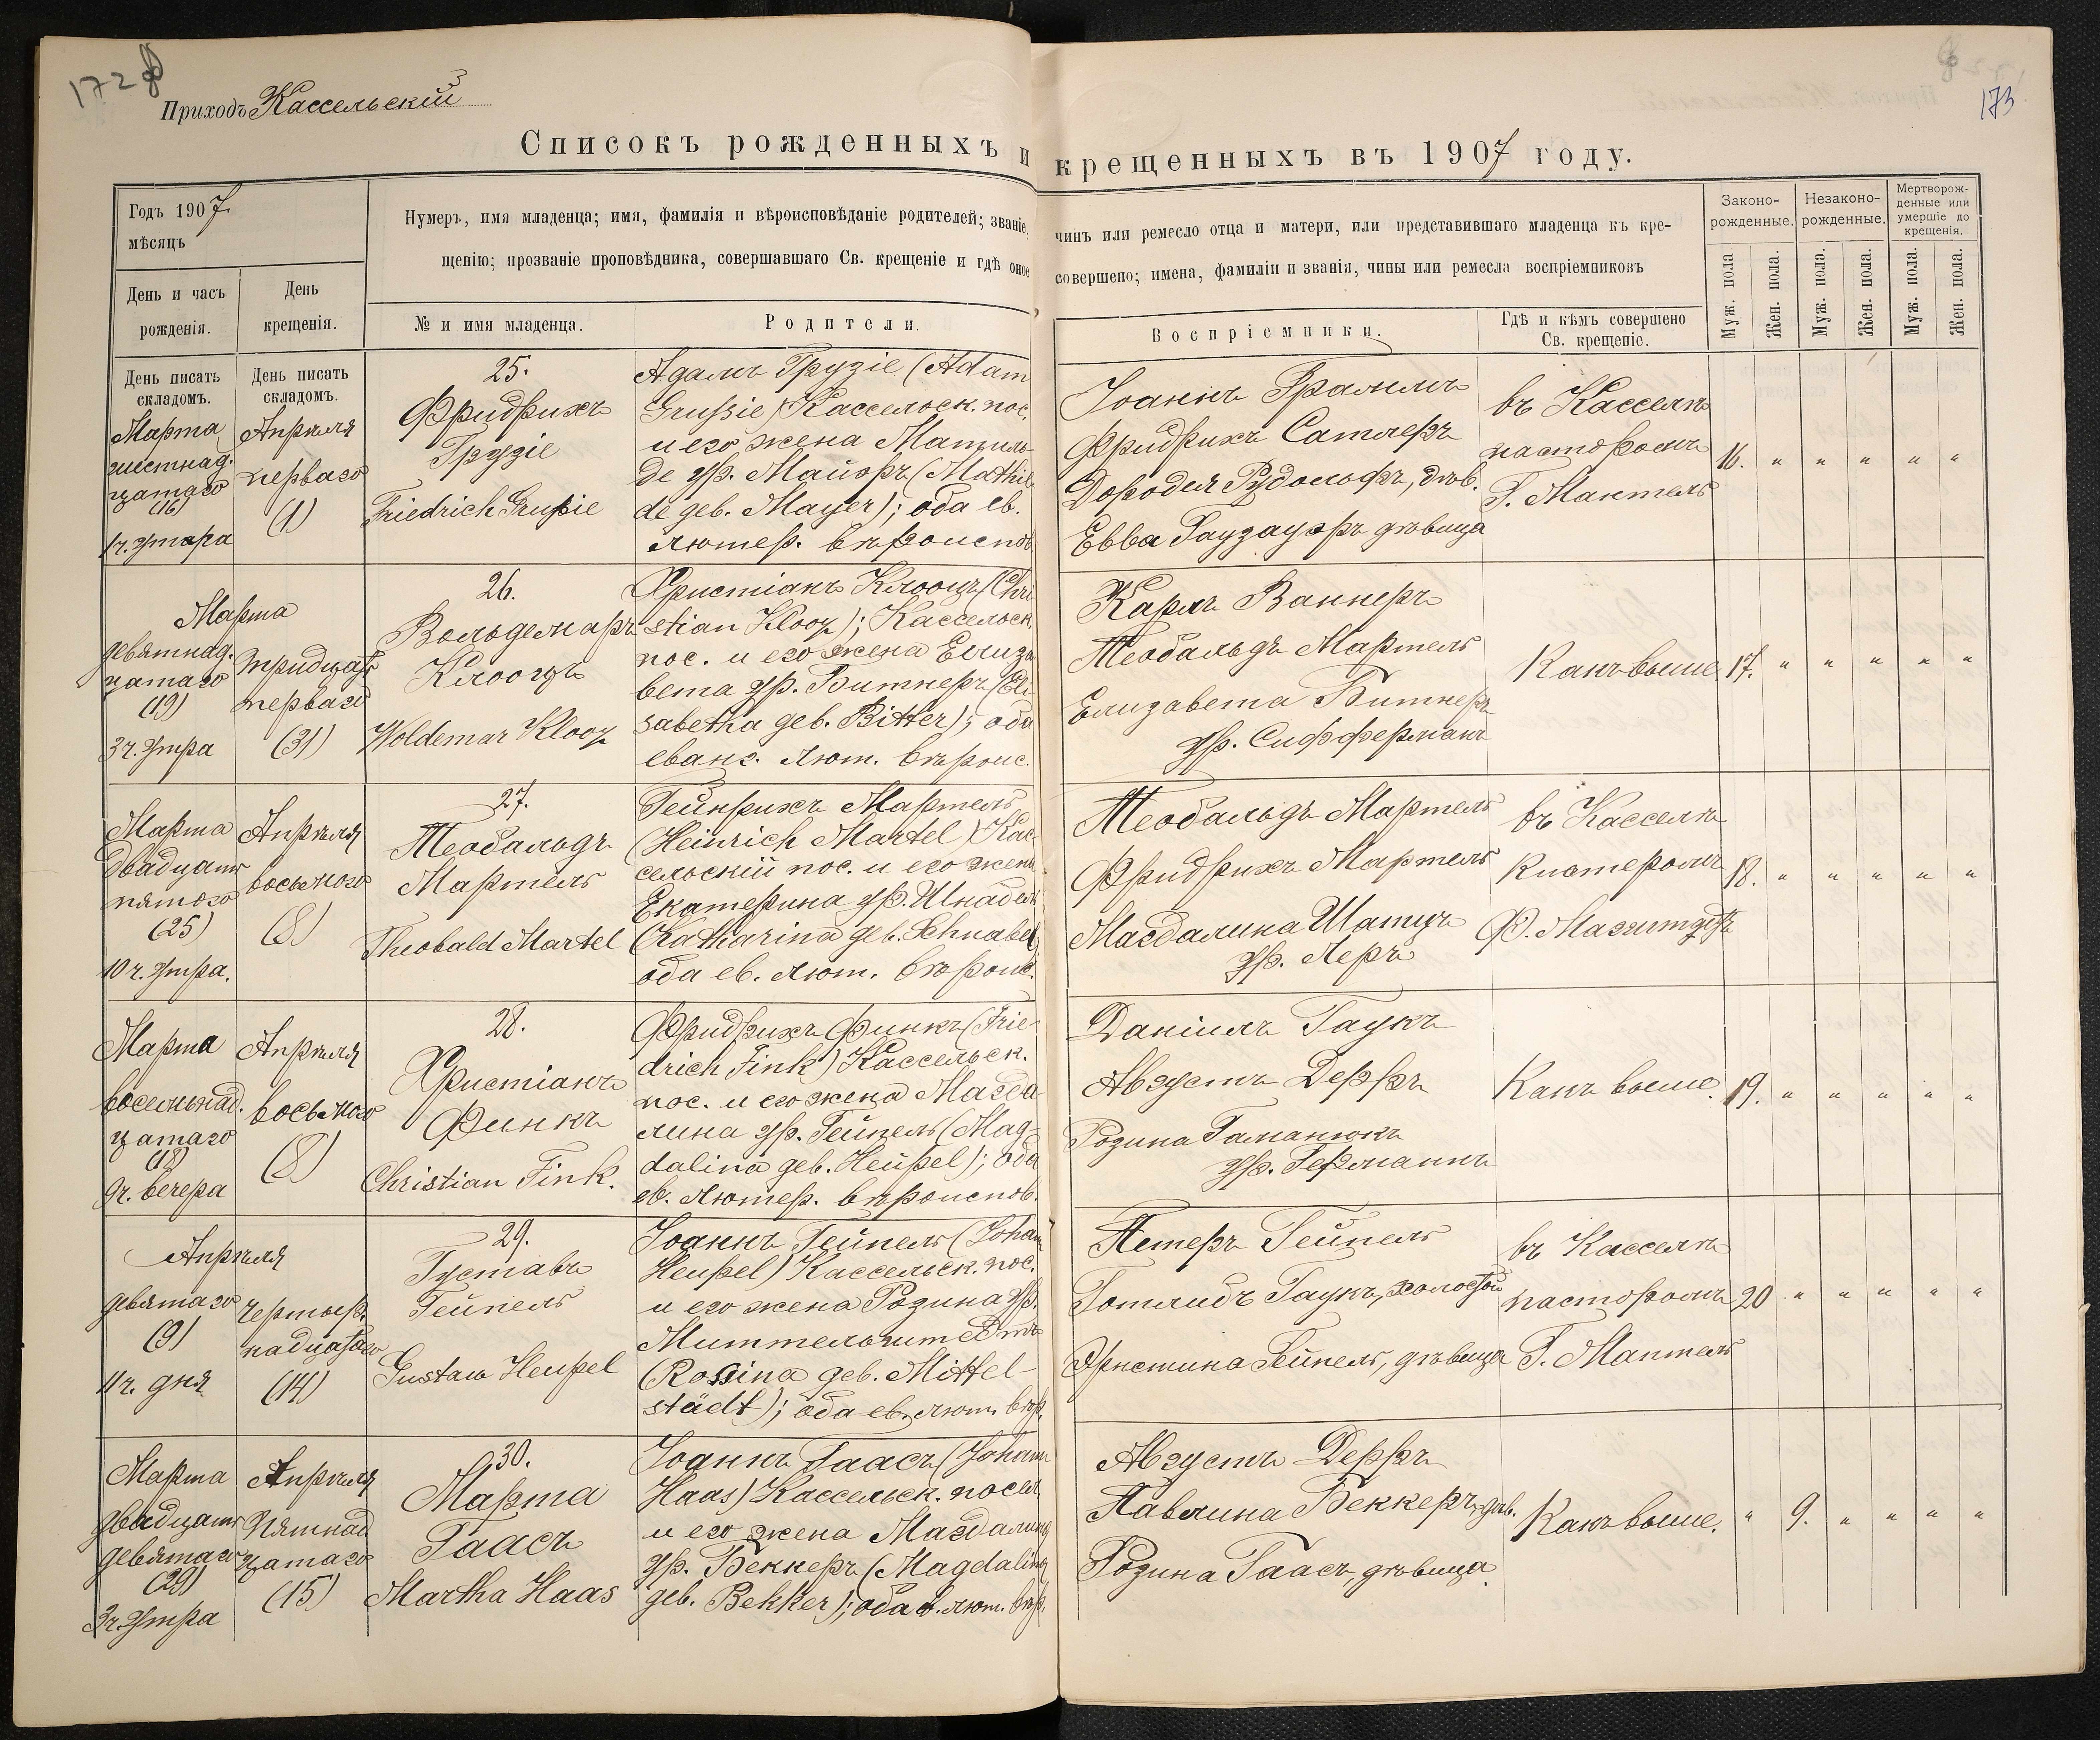 172
173
Приходъ Кассельскій
3
Списокъ рожденныхъ и крещенныхъ въ 1907 году.
Годъ 1907.
мѣсяцъ
День и часъ
рожденія.
День
крещенія.
Нумеръ, имя младенца; имя, фамилія и вѣроисповѣданіе родителей; званіе,
чинъ или ремесло отца и матери, или представившаго младенца къ кре-
щенію; прозваніе проповѣдника, совершавшаго Св. крещеніе и гдѣ оное
совершено; имена, фамиліи и званія, чины или ремесла воспріемниковъ
№ и имя младенца.
Родители.
Воспріемники.
Гдѣ и кѣмъ совершено
Св. крещеніе.
Законо-
рожденные.
Незаконо-
рожденные.
Мертворож-
денные или
умершіе до
крещенія.
Муж. пола
Жен. пола.
Муж. пола.
Жен. пола.
Муж. пола.
Жен. пола.
День писать
складомъ.
День писать
складомъ.
Марта
шестнад-
цатаго
(16)
1 ч. утра
Апрѣля
перваго
(1)
25.
Фридрихъ
Грузіе
Friedrich Grußie
Адамъ Грузіе (Adam
Grußie) Кассельск. пос.
и его жена Матиль-
де ур. Майэръ (Mathil-
de geb. Mayer); оба ев.
лютер. вѣроиспов.
Іоаннъ Фраммъ
Фридрихъ Сатлеръ
Доротея Рудольфъ, дѣв.
Евва Гаузауэръ дѣвица
въ Касселѣ
пасторомъ
Г. Мантель
16. " " " " "
Марта
девятнад-
цатаго
(19)
3 ч. утра
тридцать
перваго
(31)
26.
Вольдемаръ
Клооцъ
Woldemar Klooz
Христіанъ Клооцъ (Chri-
stian Klooz); Кассельск.
пос. и его жена Елиза-
бета ур. Битнеръ (Eli-
sabetha geb. Bitter); оба
еванг. лют. вѣроис.
Карлъ Ваннеръ
Теобальдъ Мартель
Елизавета Битнеръ
ур. Сифферманъ
Какъ выше.
17. " " " " "
Марта
двадцать
пятого
(25)
10 ч. утра.
Апрѣля
восьмого
(8)
27.
Теобальдъ
Мартель
Theobald Martel
Гейнрихъ Мартель
(Heinrich Martel) Кас-
сельскій пос. и его жена
Екатерина ур. Шнабель
(Katharina geb. Schnabel)
оба ев. лют. вѣроис.
Теобальдъ Мартель
Фридрихъ Мартель
Магдалина Шатцъ
ур. Леръ
въ Касселѣ
Кистеромъ
18. " " " " "
Марта
восемьнад-
цатаго
(18)
9 ч. вечера
Апрѣля
восьмого
(8)
28.
Христіанъ
Финкъ
Christian Fink.
Фридрихъ Финкъ (Frie-
drich Fink) Кассельск.
пос. и его жена Магда-
лина ур. Гейпель (Mag-
dalina geb. Heußel); оба
ев. лютер. вѣроиспов.
Даніилъ Гаукъ
Августъ Дерръ
Розина Гаманюкъ
ур. Германнъ
Какъ выше.
19. " " " " "
Апрѣля
девятаго
(9)
11 ч. дня
четыр-
надцатаго
(14)
29.
Густавъ
Гейпель
Gustaw Heußel
Іоаннъ Гейпель (Johann
Heußel) Кассельск. пос.
и его жена Розина ур.
Миттельштедтъ
(Rosina geb. Mittel-
städt); оба ев. лют. вѣр.
Петеръ Гейпель
Готлибъ Гаукъ, холостой
Христина Гейпель, дѣвица
въ Касселѣ
пасторомъ
Г. Мантель
20 " " " " "
Марта
двадцать
девятаго
(29)
3 ч. утра
Апрѣля
пятнад-
цатаго
(15)
30.
Марта
Гаасъ
Martha Haas
Іоаннъ Гаасъ (Johann
Haas) Кассельск. посел.
и его жена Магдалина
ур. Беккеръ (Magdalina
geb. Bekker); оба ев. лют. вѣр.
Августъ Дерръ
Павлина Беккеръ, дѣв.
Розина Гаасъ, дѣвица.
Какъ выше.
" 9. " " " "